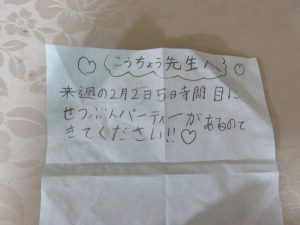 ♡こうちょう先生へ♡
来週の2月2日5時間目に
せつぶんパーティーがあるので
きてください!!♡